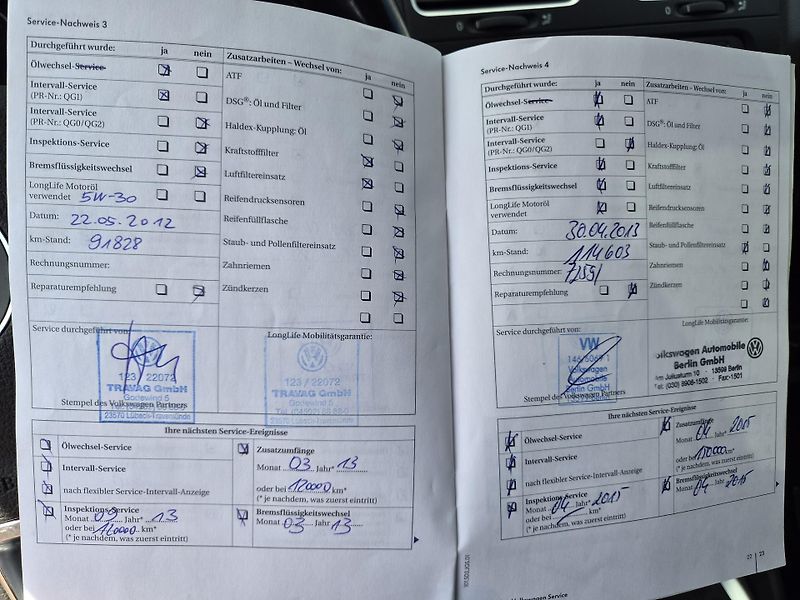 Service-Nachweis 3
Durchgeführt wurde: ja nein
Ölwechsel-Service
Intervall-Service
(PR-Nr.: QG1)
Intervall-Service
(PR-Nr.: QG0/QG2)
Inspektions-Service
Bremsflüssigkeitswechsel
LongLife Motoröl
verwendet 5W-30
Datum: 22.05.2012
km-Stand: 91828
Rechnungsnummer:
Reparaturempfehlung
Zusatzarbeiten – Wechsel von: ja nein
ATF
DSG®: Öl und Filter
Haldex-Kupplung: Öl
Kraftstofffilter
Luftfiltereinsatz
Reifendrucksensoren
Reifenfüllflasche
Staub- und Pollenfiltereinsatz
Zahnriemen
Zündkerzen
Service durchgeführt von:
123 / 22072
TRAVAG GmbH
Godewind 5
23570 Lübeck-Travemünde
Stempel des Volkswagen Partners
LongLife Mobilitätsgarantie:
123 / 22072
TRAVAG GmbH
Godewind 5
23570 Lübeck-Travemünde
Ihre nächsten Service-Ereignisse
Ölwechsel-Service
Intervall-Service
nach flexibler Service-Intervall-Anzeige
Inspektions-Service
Monat 03 Jahr* 13
oder bei 120000 km*
(* je nachdem, was zuerst eintritt)
Zusatzumfänge
Monat 03 Jahr* 13
oder bei 120000 km*
(* je nachdem, was zuerst eintritt)
Bremsflüssigkeitswechsel
Monat 03 Jahr 13
Service-Nachweis 4
Durchgeführt wurde: ja nein
Ölwechsel-Service
Intervall-Service
(PR-Nr.: QG1)
Intervall-Service
(PR-Nr.: QG0/QG2)
Inspektions-Service
Bremsflüssigkeitswechsel
LongLife Motoröl
verwendet
Datum: 30.04.2013
km-Stand: 114603
Rechnungsnummer:
Reparaturempfehlung
Zusatzarbeiten – Wechsel von: ja nein
ATF
DSG®: Öl und Filter
Haldex-Kupplung: Öl
Kraftstofffilter
Luftfiltereinsatz
Reifendrucksensoren
Reifenfüllflasche
Staub- und Pollenfiltereinsatz
Zahnriemen
Zündkerzen
Service durchgeführt von:
VW
Volkswagen
Automobile
Berlin GmbH
13599 Berlin
Stempel des Volkswagen Partners
LongLife Mobilitätsgarantie:
Volkswagen Automobile
Berlin GmbH
Am Juliusturm 10 · 13599 Berlin
Tel. (030) 8908-1502 Fax:-1501
Ihre nächsten Service-Ereignisse
Ölwechsel-Service
Intervall-Service
nach flexibler Service-Intervall-Anzeige
Inspektions-Service
Monat 04 Jahr* 2015
oder bei km*
(* je nachdem, was zuerst eintritt)
Zusatzumfänge
Monat 04 Jahr* 2015
oder bei 150000 km*
(* je nachdem, was zuerst eintritt)
Bremsflüssigkeitswechsel
Monat 04 Jahr 2015
22 23
Volkswagen Service